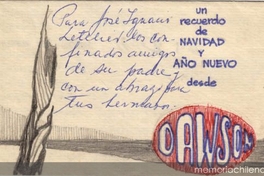 Para José Ignacio
Letelier, los con-
finados amigos
de su padre y
con un abrazo para
tus hermanos.
un
recuerdo
de
NAVIDAD
y
AÑO NUEVO
desde
DAWSON
memoriachilena